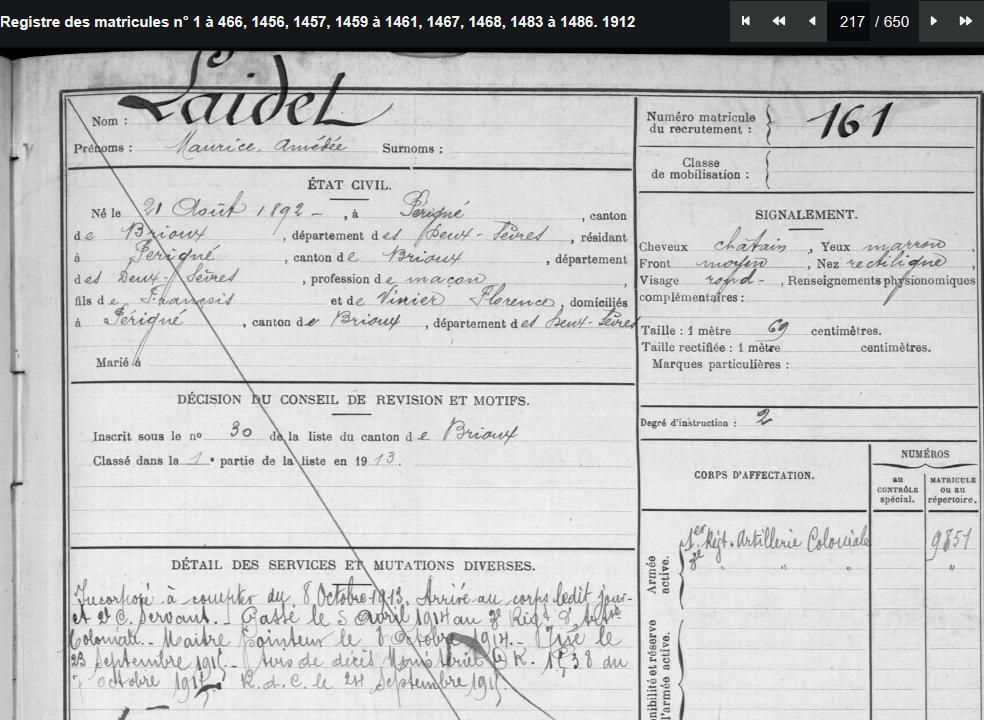 Registre des matricules n° 1 à 466, 1456, 1457, 1459 à 1461, 1467, 1468, 1483 à 1486. 1912
217 / 650
Nom : Laidet
Prénoms : Maurice, Amédée Surnoms :
ÉTAT CIVIL.
Né le 21 Août 1892 , à Périgné , canton
de Brioux , département des Deux-Sèvres , résidant
à Périgné , canton de Brioux , département
des Deux-Sèvres , profession de maçon ,
fils de François et de Vinier Florence , domiciliés
à Périgné , canton de Brioux , département des Deux-Sèvres
Marié à
DÉCISION DU CONSEIL DE REVISION ET MOTIFS.
Inscrit sous le no 30 de la liste du canton de Brioux
Classé dans la 1e partie de la liste en 1913.
DÉTAIL DES SERVICES ET MUTATIONS DIVERSES.
Incorporé à compter du 8 Octobre 1913. Arrivé au corps ledit jour
et 2e C. Servant. Passé le 5 Avril 1914 au 3e Régt d'Artie
Coloniale. Maitre Pointeur le 8 Octobre 1914. Tué le
23 Septembre 1915. Avis de décès Ministériel K. du
Octobre 1915 R. d. C. le 24 Septembre 1915.
Numéro matricule
du recrutement : 161
Classe
de mobilisation :
SIGNALEMENT.
Cheveux châtain , Yeux marron ,
Front moyen , Nez rectiligne ,
Visage rond , Renseignements physionomiques
complémentaires :
Taille : 1 mètre 69 centimètres.
Taille rectifiée : 1 mètre centimètres.
Marques particulières :
Degré d'instruction : 2
CORPS D'AFFECTATION.
NUMÉROS
au
CONTRÔLE
spécial.
MATRICULE
ou au
répertoire.
Armée
active.
1er Régt. Artillerie Coloniale 9851
3e " " " "
onibilité et réserve
l'armée active.